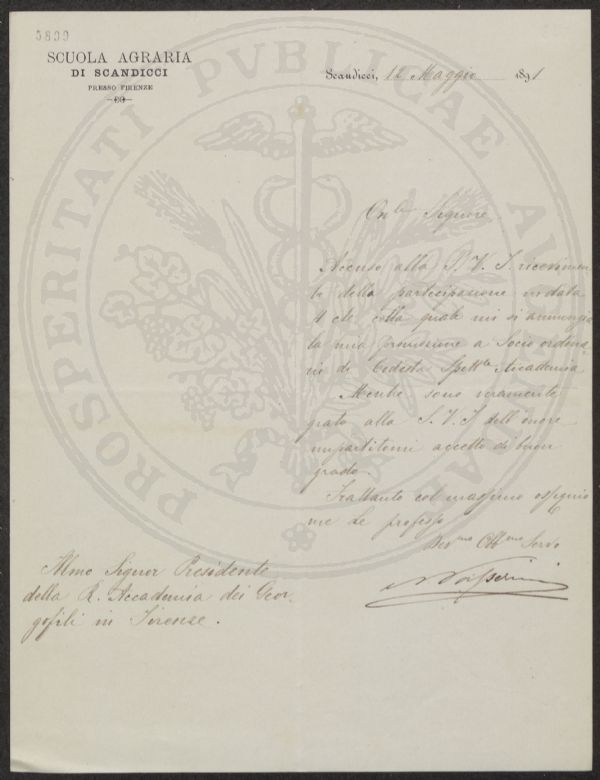 5899
SCUOLA AGRARIA
DI SCANDICCI
PRESSO FIRENZE
Scandicci, 12 Maggio 1891
PROSPERITATI PVBLICAE AVGENDAE
Onle Signore
Accuso alla S. V. I. ricevimen
to della partecipazione in data
colla quale mi si annunzia
la mia promozione a Socio ordina
rio di Codesta Spettle Accademia.
Mentre sono veramente
grato alla S. V. I dell'onore
impartitomi accetto di buon
grado.
Frattanto col massimo ossequio
me Le professo
Devmo Obbmo Servo
N Passerini
Illmo Signor Presidente
della R. Accademia dei Geor-
gofili in Firenze.